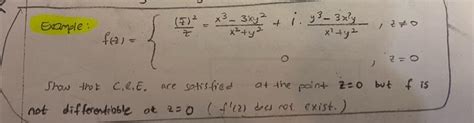 Example:
f(z) = { (z̄)²/z = x³ - 3xy²/x² + y² + i · y³ - 3x²y/x² + y² , z ≠ 0
0 , z = 0
Show that C.R.E. are satisfied at the point z=0 but f is
not differentiable at z=0 ( f'(z) does not exist.)